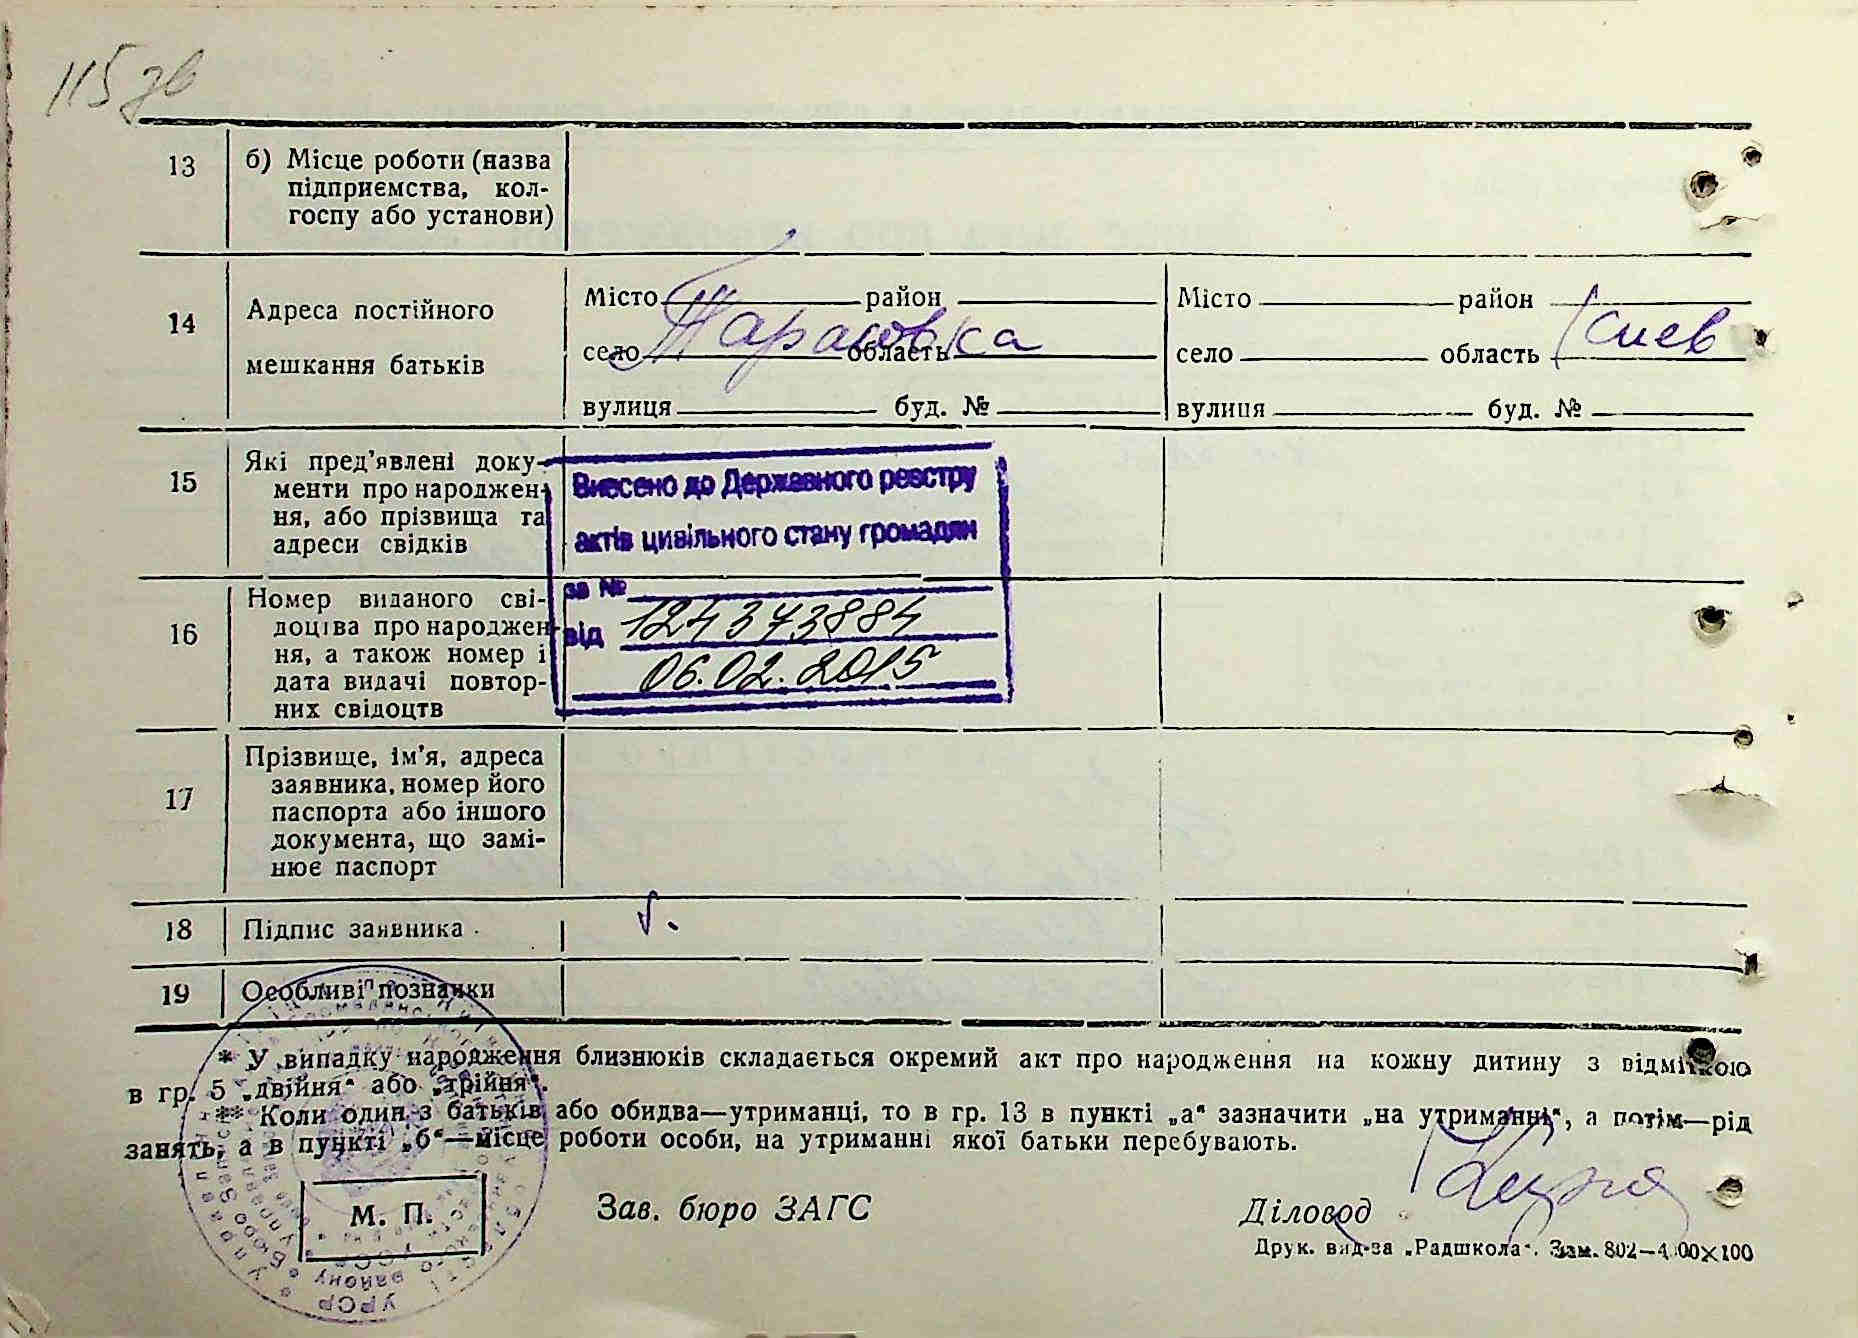 115 зв
13
б) Місце роботи (назва
підприємства, кол-
госпу або установи)
14
Адреса постійного
мешкання батьків
Місто район
село Тарасовка область
вулиця буд. №
Місто район
село область Киев
вулиця буд. №
15
Які пред'явлені доку-
менти про народжен-
ня, або прізвища та
адреси свідків
Внесено до Державного реєстру
актів цивільного стану громадян
за №
124373884
від
06.02.2015
16
Номер виданого сві-
доцтва про народжен-
ня, а також номер і
дата видачі повтор-
них свідоцтв
17
Прізвище, ім'я, адреса
заявника, номер його
паспорта або іншого
документа, що замі-
нює паспорт
18
Підпис заявника
19
Особливі познанки
* У випадку народження близнюків складається окремий акт про народження на кожну дитину з відміткою
в гр. 5 „двійня“ або „трійня“.
** Коли один з батьків або обидва—утриманці, то в гр. 13 в пункті „а“ зазначити „на утриманні“, а потім—рід
занять, а в пункті „б“—місце роботи особи, на утриманні якої батьки перебувають.
М. П.
Зав. бюро ЗАГС
Діловод
Друк. вид-ва „Радшкола“. Зам. 802—4.00×100
УРСР
району